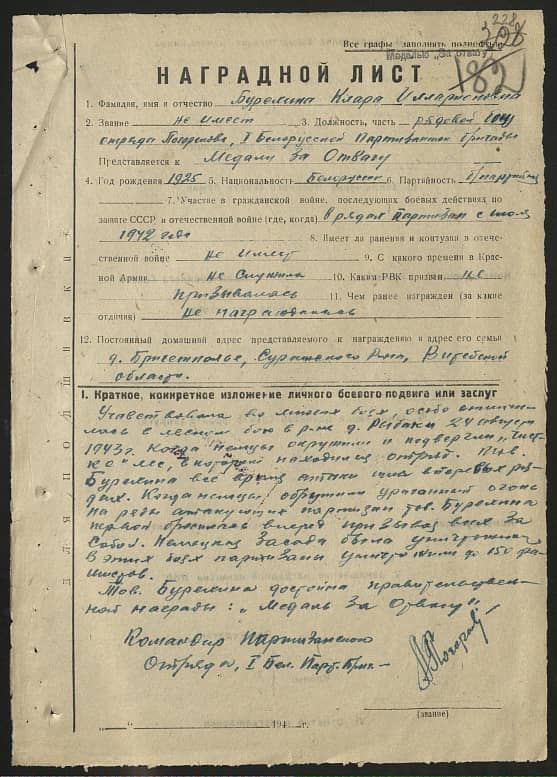 228
Все графы заполнять полностью
Медалью „За отвагу"
182
НАГРАДНОЙ ЛИСТ
1. Фамилия, имя и отчество Бурелина Клара Илларионовна
2. Звание не имеет 3. Должность, часть рядовой
отряда Погорелова, I Белорусской Партизанской бригады
Представляется к Медали За Отвагу
4. Год рождения 1925 5. Национальность Белорусск 6. Партийность б/партийн
7. Участие в гражданской войне, последующих боевых действиях по
защите СССР и отечественной войне (где, когда) в рядах партизан с июля
1942 года 8. Имеет ли ранения и контузии в отече-
ственной войне не имеет 9. С какого времени в Крас-
ной Армии не служила 10. Каким РВК призван не
призывалась 11. Чем ранее награжден (за какие
отличия) не награждалась
12. Постоянный домашний адрес представляемого к награждению и адрес его семьи
д. Суражского р-на, Витебской
области.
I. Краткое, конкретное изложение личного боевого подвига или заслуг
Участвовала во многих боях, особо отличи-
лась в лесном бою в р-не д. Рыбаки 24 август
1943 г. Когда немцы окружили и подвергли „Чист-
ке" лес, в котором находился отряд. Тов.
Бурелина все время атаки шла в первых ря-
дах. Когда немцы, обрушили ураганный огонь
на ряды атакующих партизан тов. Бурелина
первой бросилась вперед призывая всех за
собой. Немецкая засада была уничтожена
В этих боях партизаны уничтожили до 150 фа-
шистов.
Тов. Бурелина достойна правительствен-
ной награды: „Медаль За Отвагу"
Командир партизанского
Отряда, I Бел. Парт. Бриг.
(звание)
„ " 194 г.